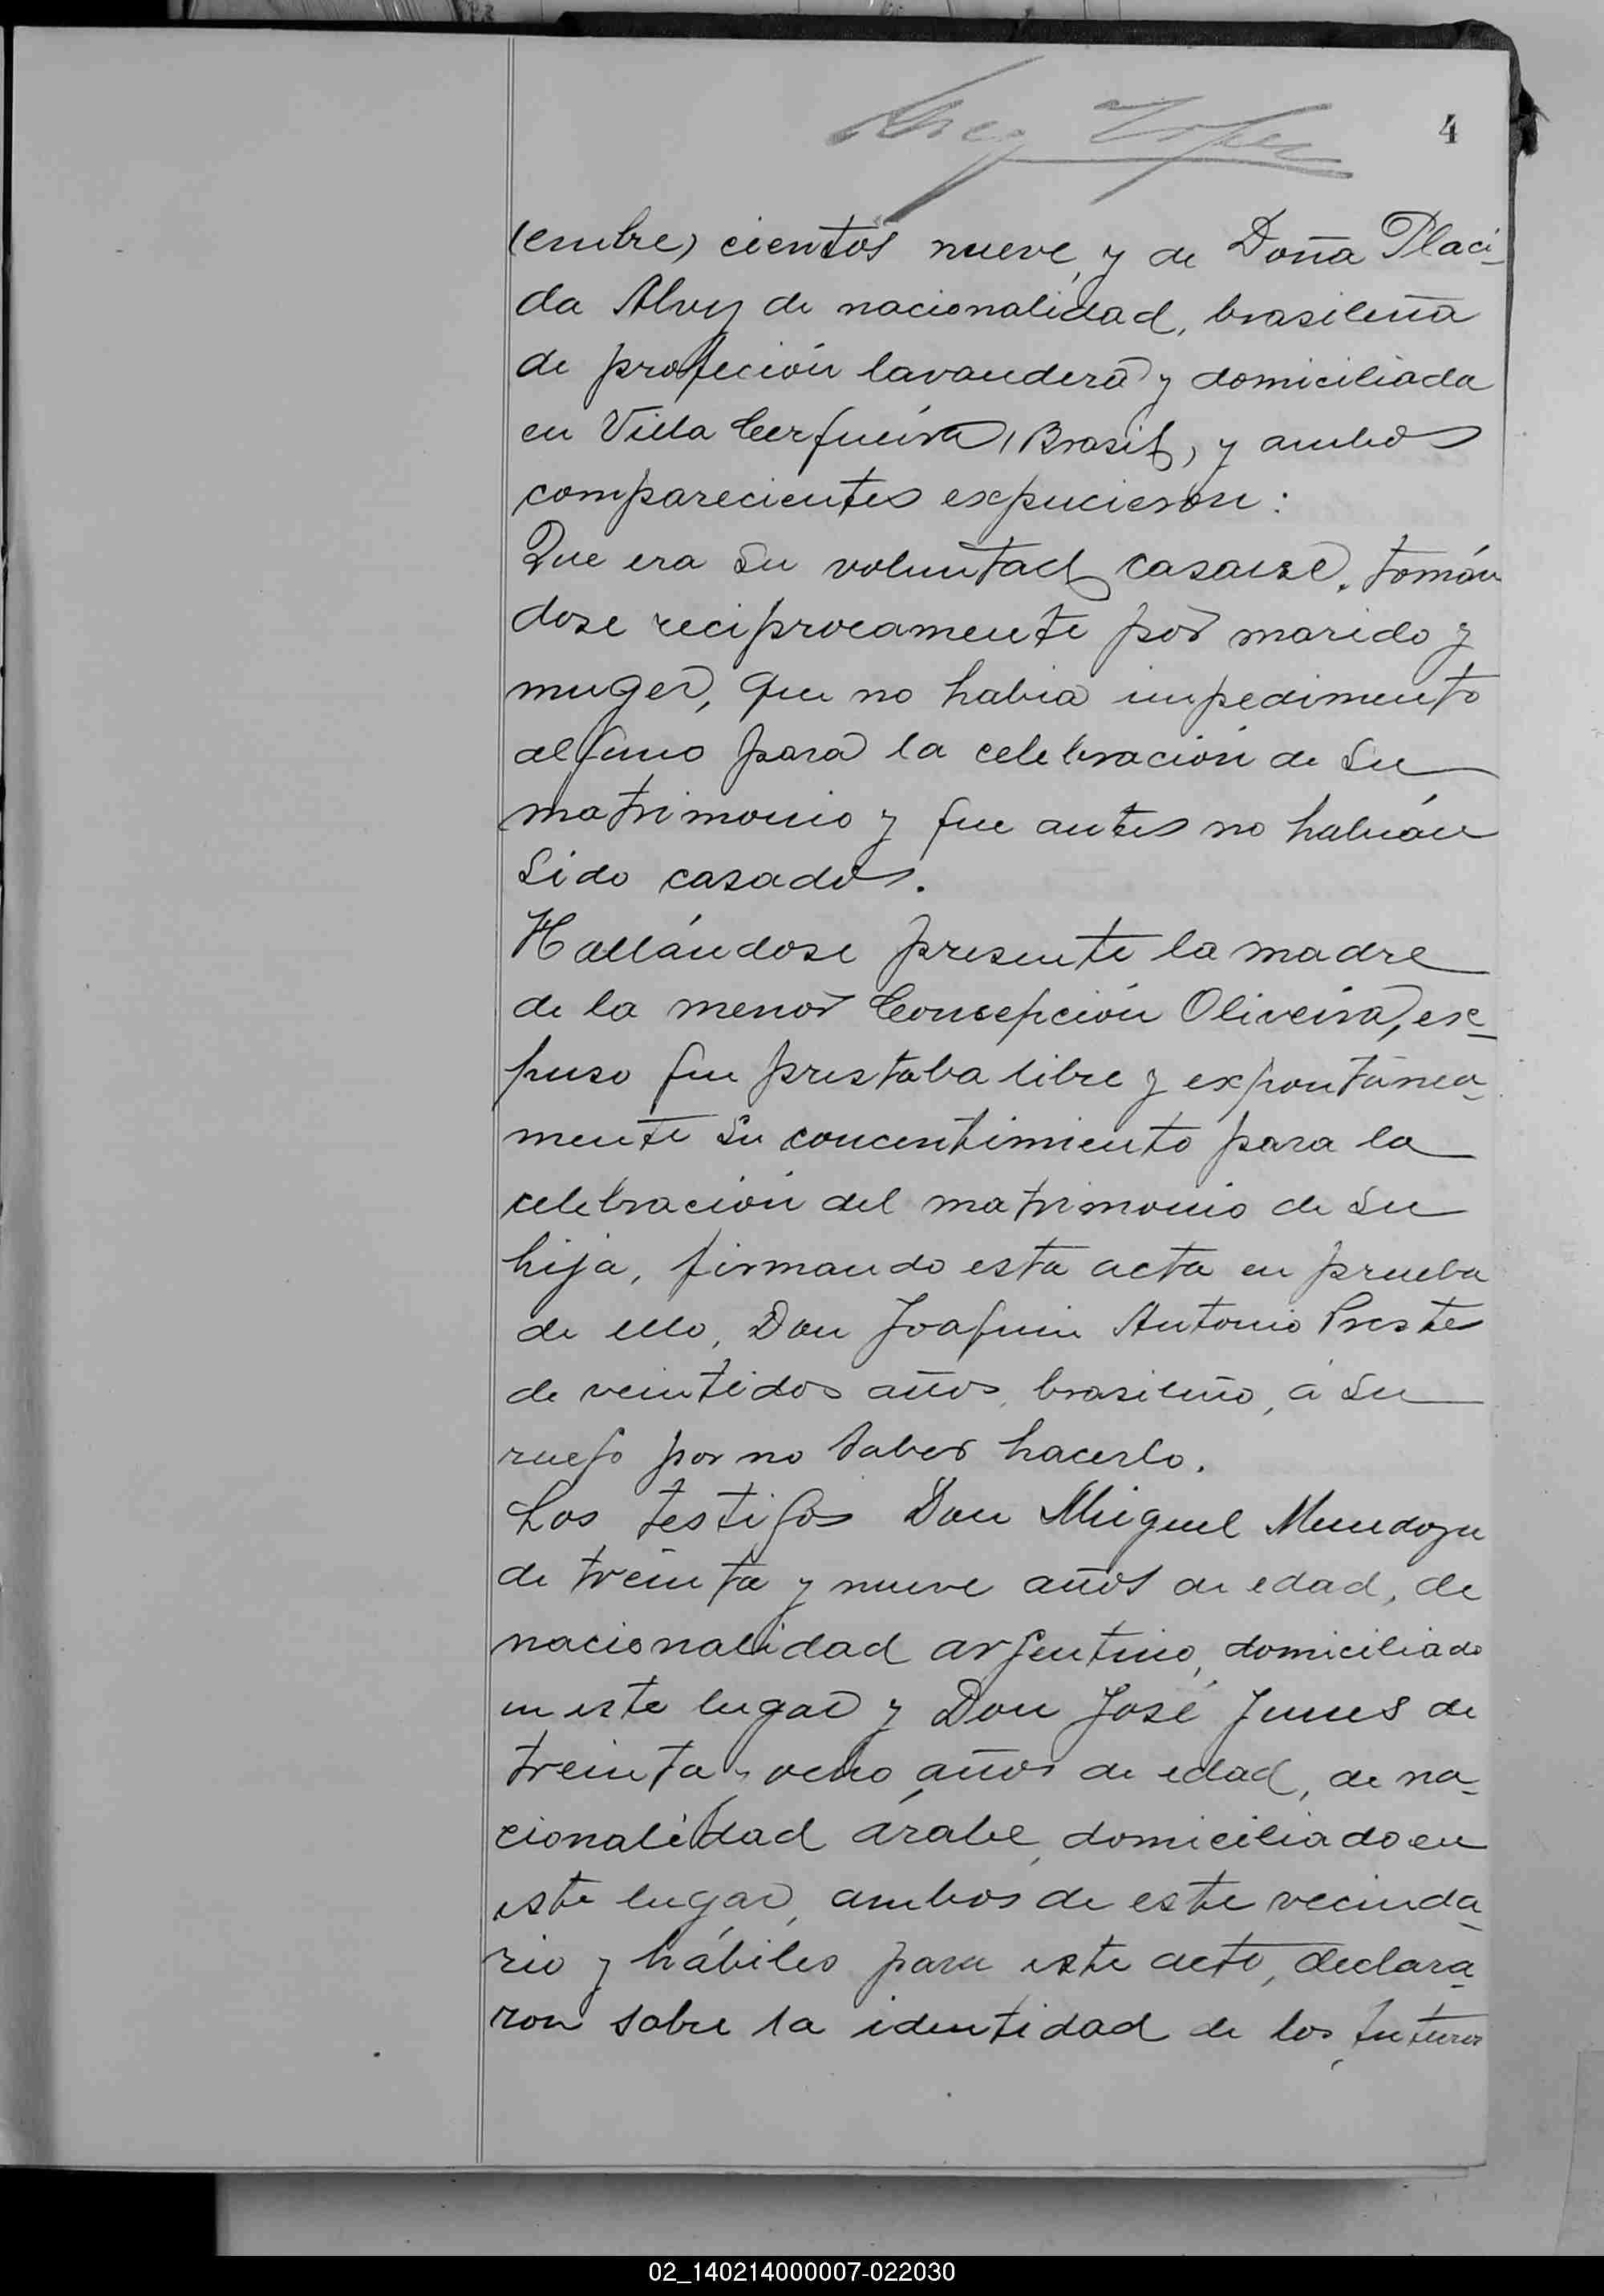 4
(embre) cientos nueve, y de Doña Placi-
da Alvez de nacionalidad, brasileña
de profeción lavandera y domiciliada
en Villa Cerqueira (Brasil) y ambos
comparecientes expucieron:
Que era su voluntad casarse, tomán
dose reciprocamente por marido y
muger, que no habia impedimento
alguno para la celebración de su
matrimonio y que antes no habían
sido casados.
Hallándose presente la madre
de la menor Concepción Oliveira, ex-
puso que prestaba libre y expontánea-
mente su concentimiento para la
celebración del matrimonio de su
hija, firmando esta acta en prueba
de ello, Don Joaquin Antonio Preste
de veintidos años, brasileño, á su
ruego por no saber hacerlo.
Los testigos Don Miguel Mendoza
de treinta y nueve años de edad, de
nacionalidad argentino, domiciliado
en este lugar y Don José Junes de
treinta y ocho años de edad, de na-
cionalidad árabe, domiciliado en
este lugar, ambos de este vecinda-
rio y hábiles para este acto, declara-
ron sobre la identidad de los futuros
02_140214000007-022030